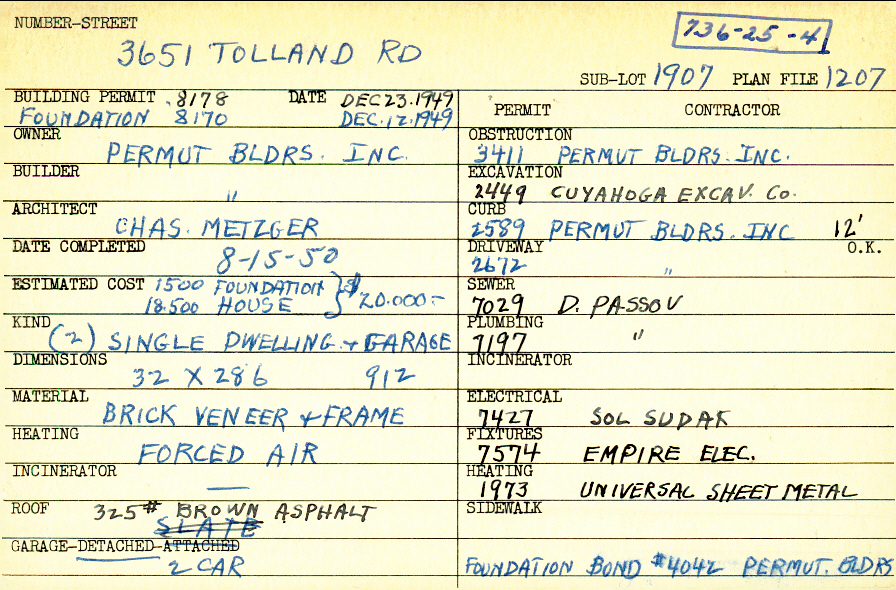 NUMBER-STREET
736-25-4
3651 TOLLAND RD
SUB-LOT 1907 PLAN FILE 1207
BUILDING PERMIT 8178 DATE DEC 23.1949
FOUNDATION 8170 DEC.12.1949
OWNER
PERMUT BLDRS. INC.
BUILDER
"
ARCHITECT
CHAS. METZGER
DATE COMPLETED
8-15-50
ESTIMATED COST 1500 FOUNDATION
18.500 HOUSE } $20.000-
KIND
(2) SINGLE DWELLING + GARAGE
DIMENSIONS
32 X 286 912
MATERIAL
BRICK VENEER + FRAME
HEATING
FORCED AIR
INCINERATOR
—
ROOF 325# BROWN ASPHALT
SLATE
GARAGE-DETACHED-ATTACHED
2 CAR
PERMIT CONTRACTOR
OBSTRUCTION
3411 PERMUT BLDRS. INC.
EXCAVATION
2449 CUYAHOGA EXCAV. Co.
CURB
2589 PERMUT BLDRS. INC 12'
DRIVEWAY O.K.
2672 "
SEWER
7029 D. PASSOV
PLUMBING
7197 "
INCINERATOR
ELECTRICAL
7427 SOL SUDAK
FIXTURES
7574 EMPIRE ELEC.
HEATING
1973 UNIVERSAL SHEET METAL
SIDEWALK
FOUNDATION BOND #4042 PERMUT. BLDRS